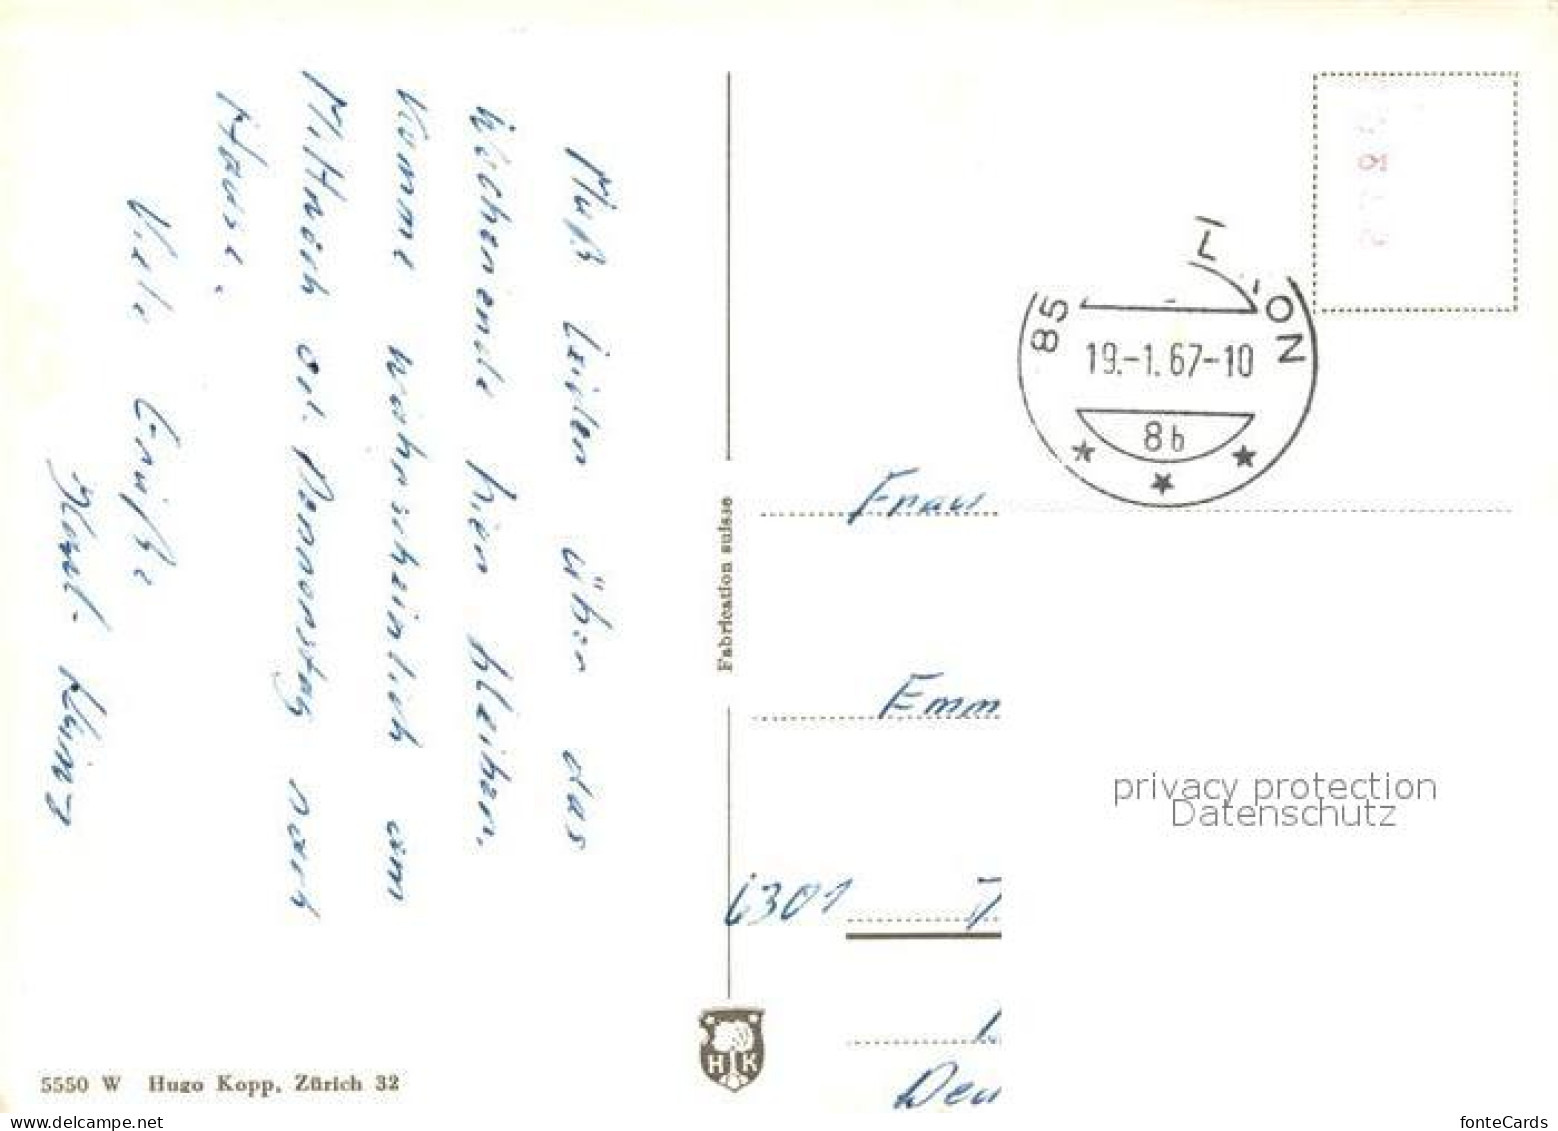 Muß leider über das
Wochenende hier bleiben.
Komme wahrscheinlich am
Mittwoch od. Donnerstag nach
Hause.
Viele Grüße
5550 W Hugo Kopp, Zürich 32
Fabrication suisse
HK
85 L ON
19.-1.67-10
8b
Frau
Emm
6301
Deu
privacy protection
Datenschutz
www.delcampe.net
fonteCards